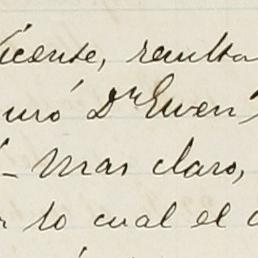 Vicente, resulta
uró Dr Ewen
- Mas claro,
r lo cual el